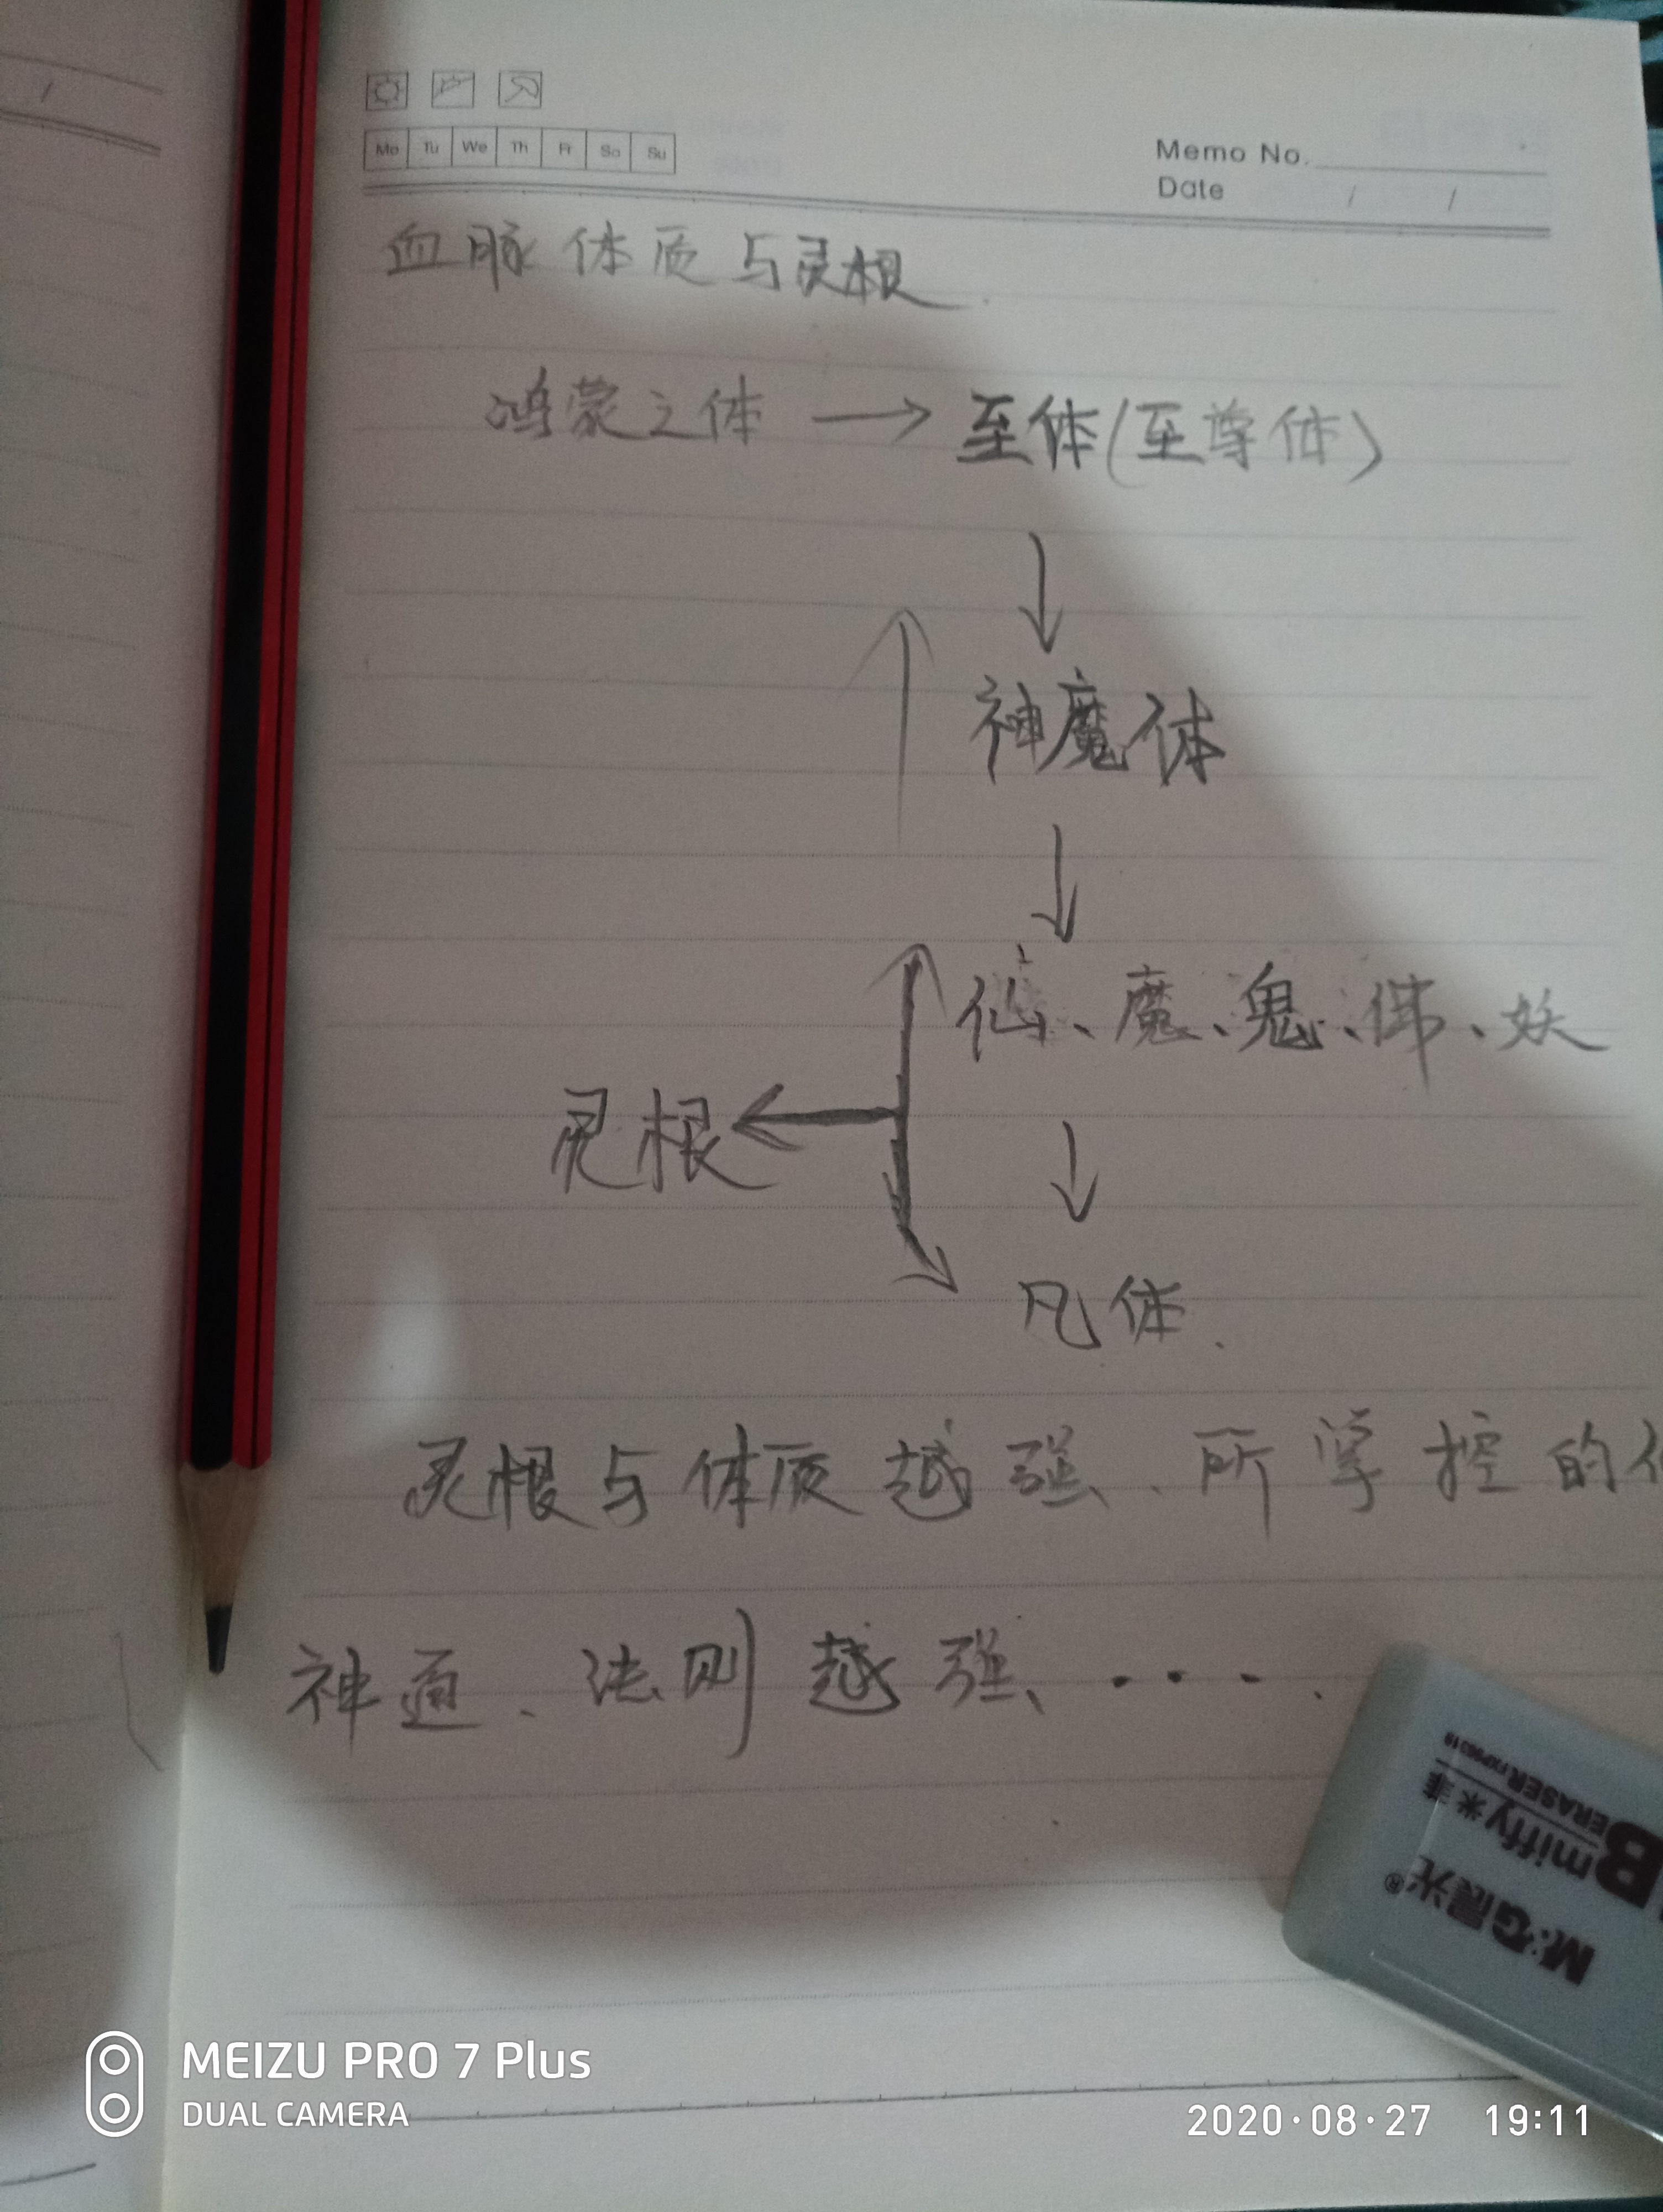 Mo Tu We Th Fr Sa Su
Memo No.
Date / /
血脉体质与灵根
鸿蒙之体 → 至体(至尊体)
↓
↑ 神魔体
↓
仙、魔、鬼、佛、妖
灵根 ←
↓
凡体.
灵根与体质越强、所掌控的
神通、法则越强、....
M&G晨光®
miffy米菲
ERASER FXP96319
B
MEIZU PRO 7 Plus
DUAL CAMERA
2020·08·27 19:11